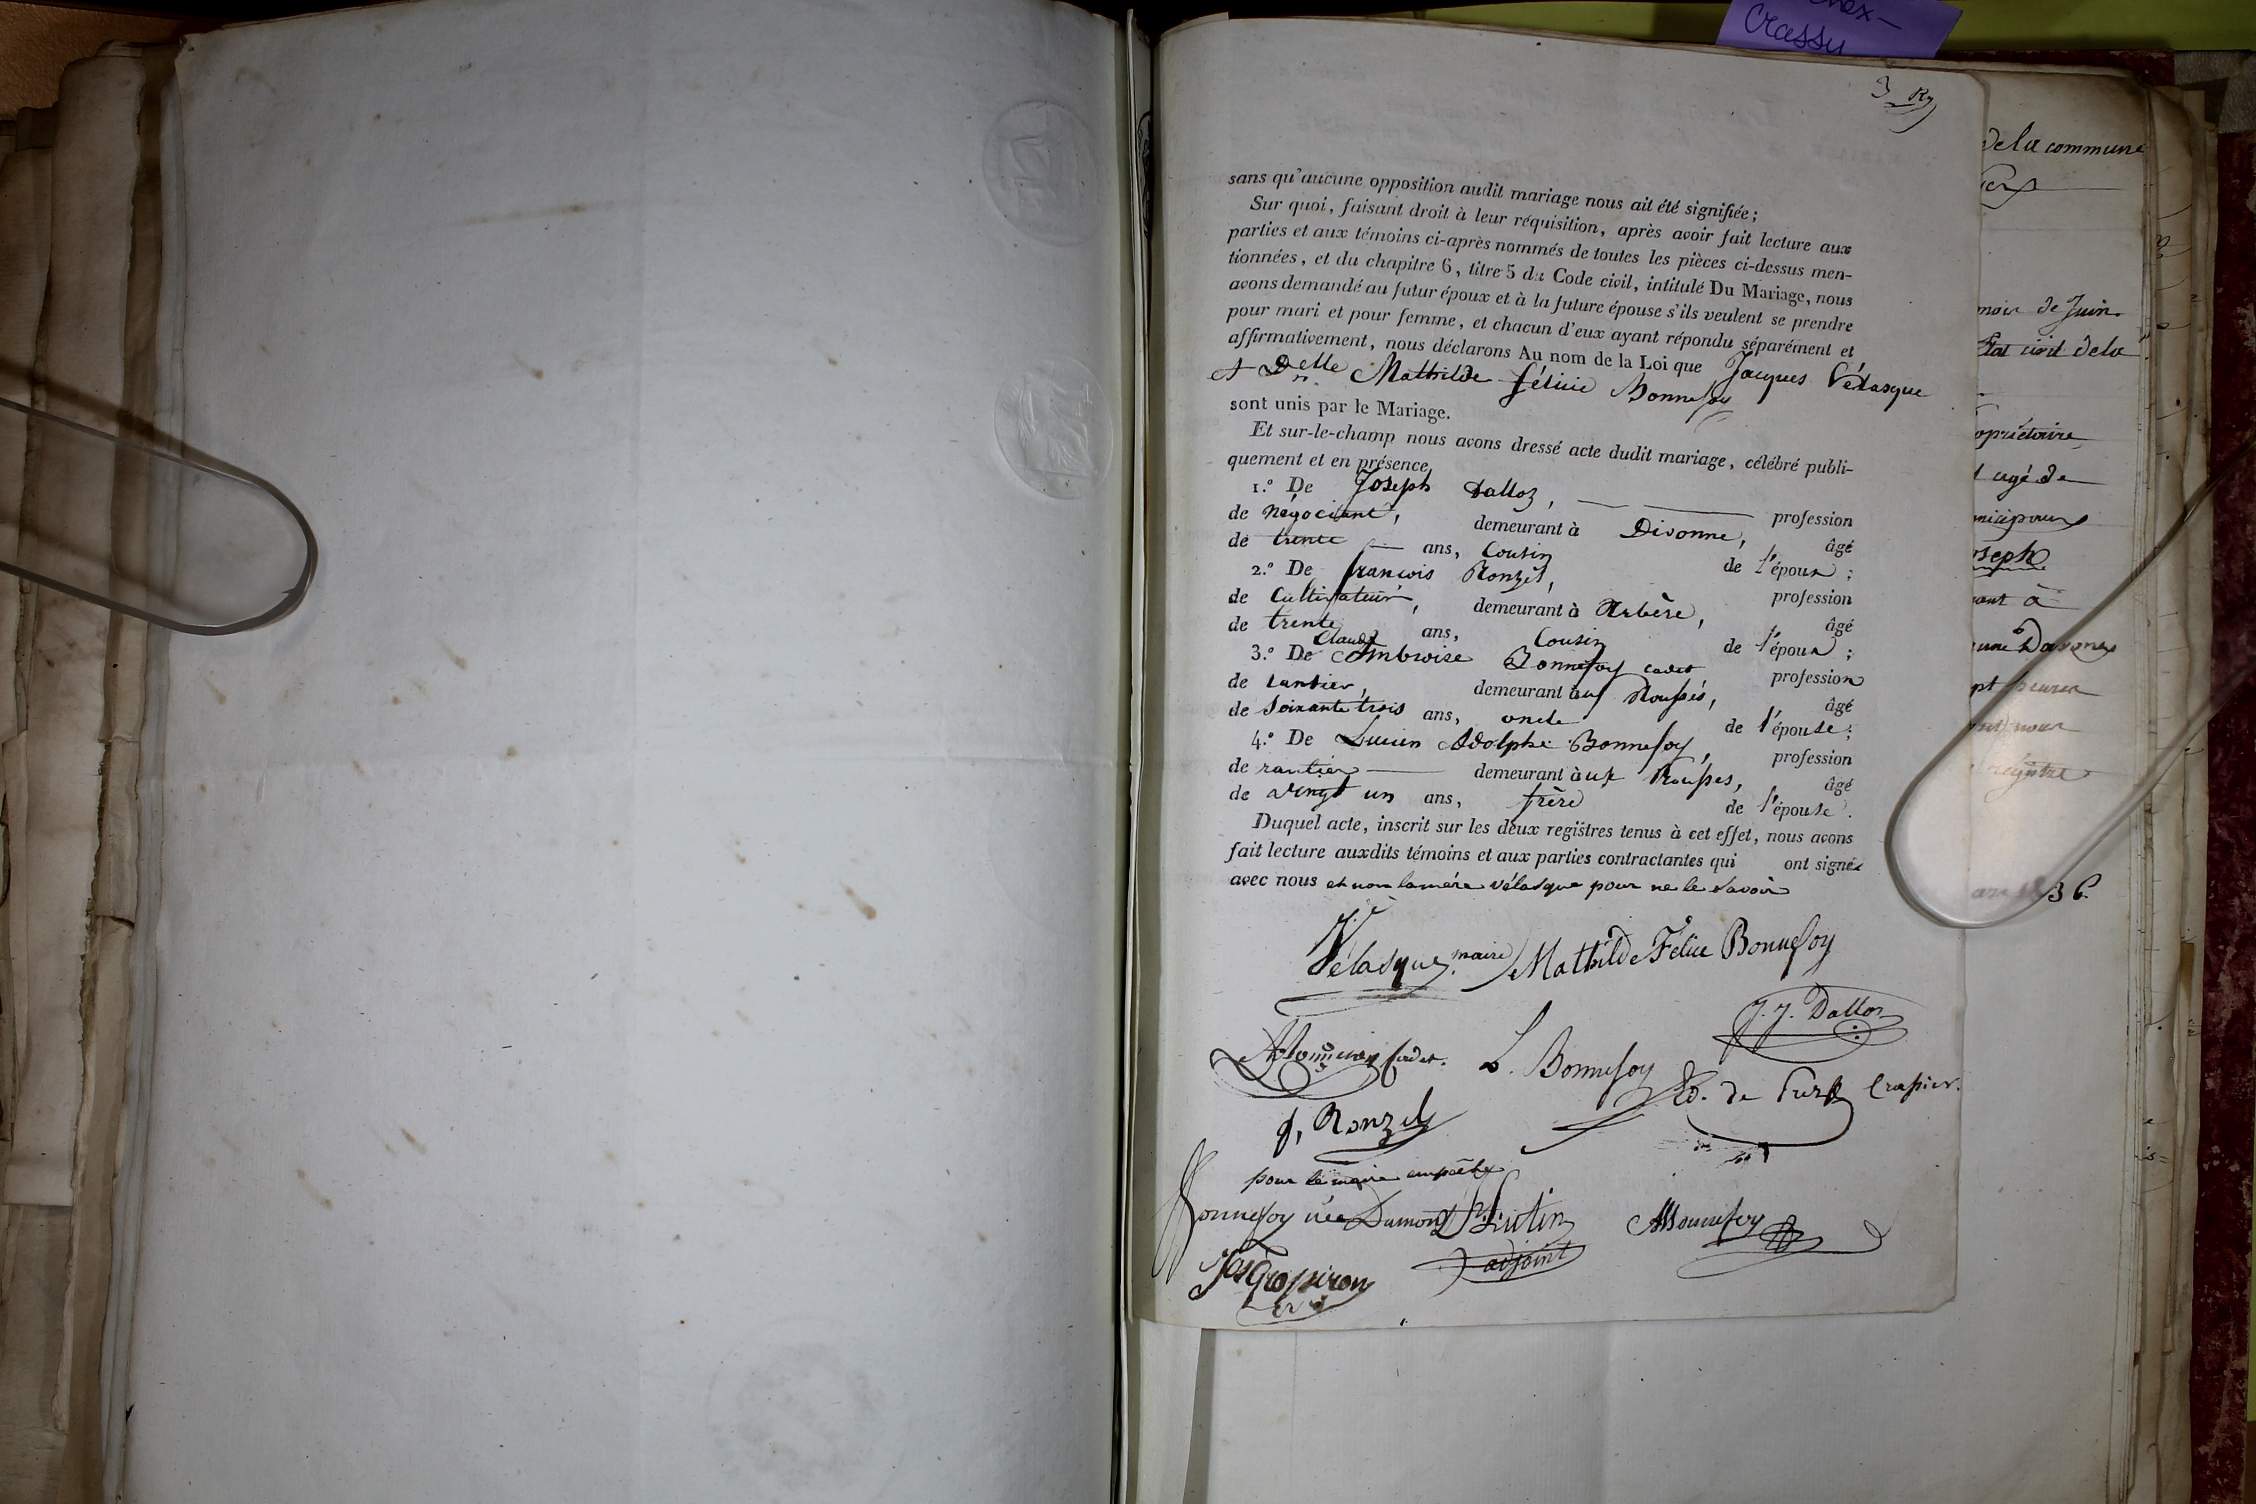 Crassy
3 Ry
sans qu'aucune opposition audit mariage nous ait été signifiée;
Sur quoi, faisant droit à leur réquisition, après avoir fait lecture aux
parties et aux témoins ci-après nommés de toutes les pièces ci-dessus men-
tionnées, et du chapitre 6, titre 5 du Code civil, intitulé Du Mariage, nous
avons demandé au futur époux et à la future épouse s'ils veulent se prendre
pour mari et pour femme, et chacun d'eux ayant répondu séparément et
affirmativement, nous déclarons Au nom de la Loi que Jacques Vélasque
et Delle Mathilde félicie Bonnefoy
sont unis par le Mariage.
Et sur-le-champ nous avons dressé acte dudit mariage, célébré publi-
quement et en présence
1.º De Joseph Dalloz, profession
de négociant, demeurant à Divonne, âgé
de trente ans, Cousin de l'époux;
2.º De françois Ronzel, profession
de Cultivateur, demeurant à Arbère, âgé
de trente ans, Cousin de l'époux;
3.º De Claude Ambroise Bonnefoy cadet profession
de rantier, demeurant aux Rousses, âgé
de soixante trois ans, oncle de l'épouse;
4.º De Lucien Adolphe Bonnefoy, profession
de rantier demeurant aux Rousses, âgé
de vingt un ans, frère de l'épouse.
Duquel acte, inscrit sur les deux registres tenus à cet effet, nous avons
fait lecture auxdits témoins et aux parties contractantes qui ont signés
avec nous et non la mére vélasque pour ne le savoir
Vélasque maire Mathilde Félice Bonnefoy
J. J. Dalloz
cadet. L. Bonnefoy
Ed. de Crassier.
f, Ronzel
pour le maire empêché
Bonnefoy née Dumont
adjoint
Bonnefoy
de la commune
mois de Juin
État civil de la
opriétaire
agé de
oseph
ant à
une
heures
nous
registre
36.